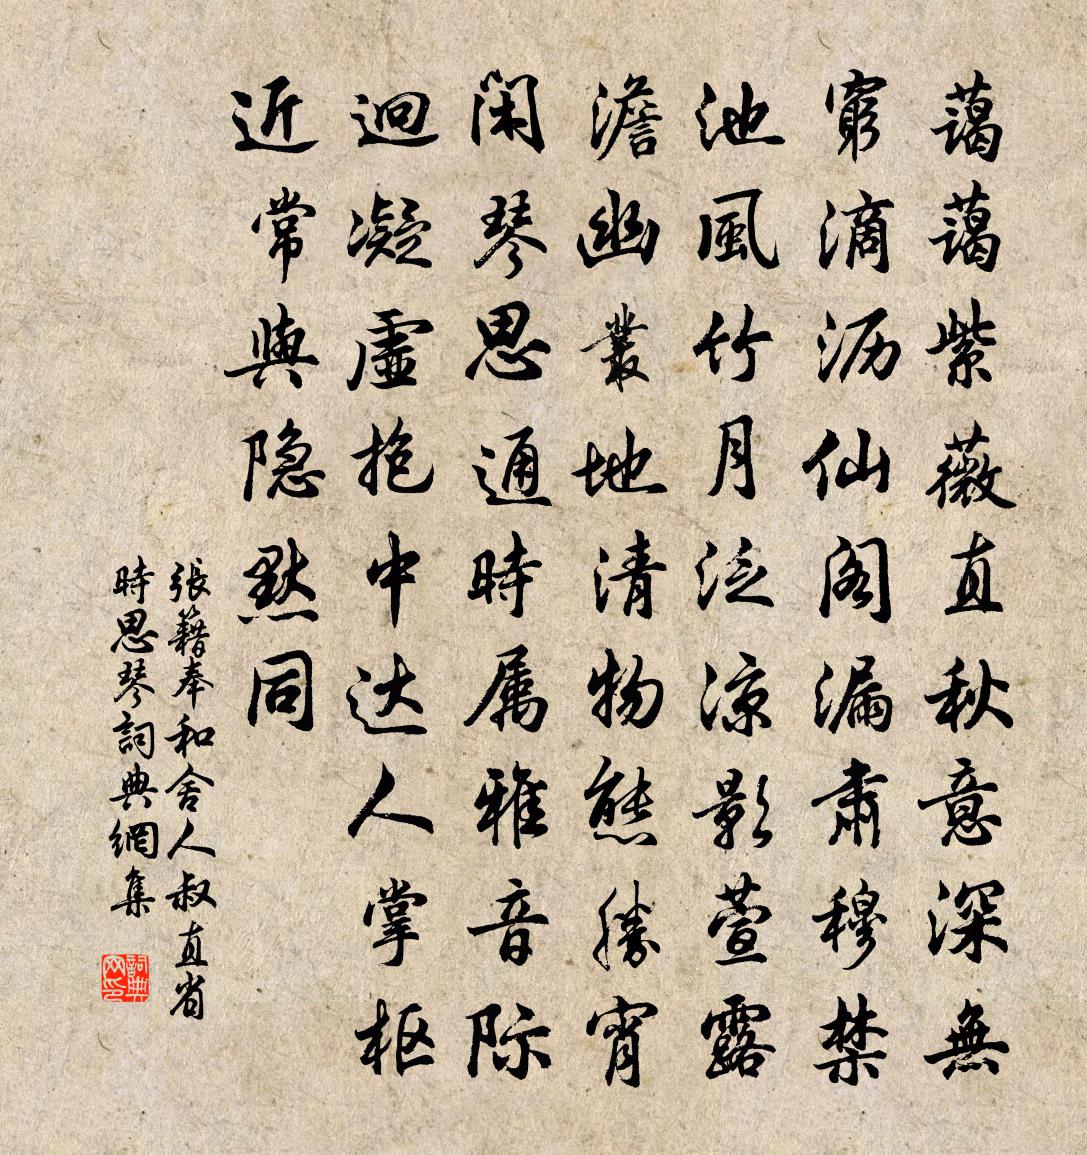 藹藹紫薇直秋意深無
窮滴沥仙阁漏肅穆禁
池風竹月泛涼影萱露
澹幽叢地清物態勝宵
閑琴思通時属雅音际
迥凝虛抱中达人掌枢
近常與隐默同
張籍奉和舍人叔直省
時思琴詞典網集
詞典
网印